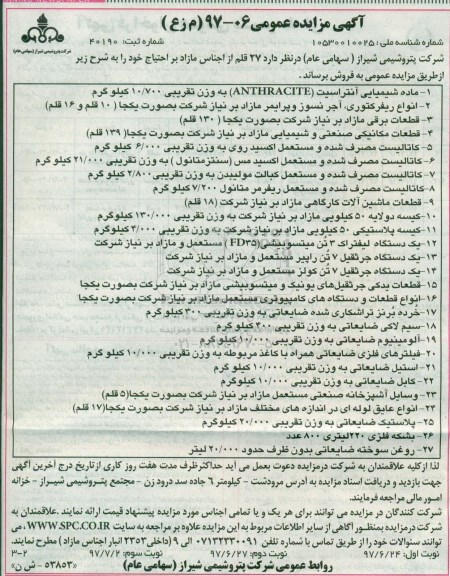 آگهی مزایده عمومی ۰۶-۹۷ (م زع)
شرکت پتروشیمی شیراز (سهامی عام)
شماره شناسه ملی: ۱۰۵۳۰۰۱۰۰۲۵ شماره ثبت: ۴۰۱۹۰
شرکت پتروشیمی شیراز ( سهامی عام) درنظر دارد ۲۷ قلم از اجناس مازاد بر احتیاج خود را به شرح زیر
ازطریق مزایده عمومی به فروش برساند.
۱-ماده شیمیایی آنتراسیت (ANTHRACITE) به وزن تقریبی ۱۰/۷۰۰ کیلو گرم
۲-انواع ریفرکتوری، آجر نسوز وپرایمر مازاد بر نیاز شرکت بصورت یکجا ( ۱۰ قلم و ۱۶ قلم)
۳-قطعات برقی مازاد بر نیاز شرکت بصورت یکجا ( ۱۳۰ قلم)
۴-قطعات مکانیکی صنعتی و شیمیایی مازاد بر نیاز شرکت بصورت یکجا( ۱۳۹ قلم)
۵-کاتالیست مصرف شده و مستعمل اکسید روی به وزن تقریبی ۶/۰۰۰ کیلو گرم
۶-کاتالیست مصرف شده و مستعمل اکسید مس (سنتزمتانول ) به وزن تقریبی ۲۱/۰۰۰ کیلو گرم
۷-کاتالیست مصرف شده و مستعمل کبالت مولیبدن به وزن تقریبی ۲/۸۰۰ کیلو گرم
۸-کاتالیست مصرف شده و مستعمل ریفرمر متانول ۷/۲۰۰ کیلو گرم
۹-قطعات ماشین آلات کارگاهی مازاد بر نیاز شرکت (۱۸ قلم)
۱۰-کیسه دولایه ۵۰ کیلویی مازاد بر نیاز شرکت به وزن تقریبی ۱۳۰/۰۰۰ کیلوگرم
۱۱-کیسه پلاستیکی ۵۰ کیلویی مازاد بر نیاز شرکت به وزن تقریبی ۲/۰۰۰ کیلوگرم
۱۲-یک دستگاه لیفتراک ۳ تُن میتسوبیشی(FD۳۵) مستعمل و مازاد بر نیاز شرکت
۱۳-یک دستگاه جرثقیل ۷ تُن راپیر مستعمل و مازاد بر نیاز شرکت
۱۴-یک دستگاه جرثقیل ۷ تُن کولز مستعمل و مازاد بر نیاز شرکت
۱۵-قطعات یدکی جرثقیل‌های یونیک و میتسوبیشی مازاد بر نیاز شرکت بصورت یکجا
۱۶-انواع قطعات و دستگاه های کامپیوتری مستعمل مازاد بر نیاز شرکت بصورت یکجا
۱۷-خرده بُرنز تراشکاری شده ضایعاتی به وزن تقریبی ۳۰۰ کیلو گرم
۱۸-سیم لاکی ضایعاتی به وزن تقریبی ۳۰۰ کیلو گرم
۱۹-آلومینیوم ضایعاتی به وزن تقریبی ۱۰/۰۰۰ کیلو گرم
۲۰-فیلترهای فلزی ضایعاتی همراه با کاغذ مربوطه به وزن تقریبی ۱۰/۰۰۰ کیلو گرم
۲۱-استیل ضایعاتی به وزن تقریبی ۱۰/۰۰۰ کیلو گرم
۲۲-کابل ضایعاتی به وزن تقریبی ۱۰/۰۰۰ کیلو گرم
۲۳-وسایل آشپزخانه صنعتی مستعمل مازاد بر نیاز شرکت بصورت یکجا(۵ قلم)
۲۴-انواع عایق لوله ای در اندازه های مختلف مازاد بر نیاز شرکت بصورت یکجا(۱۷ قلم)
۲۵-پلاستیک ضایعاتی به وزن تقریبی ۲۰/۰۰۰ کیلوگرم
۲۶-بشکه فلزی ۲۲۰لیتری ۸۰۰ عدد
۲۷- روغن سوخته ضایعاتی بدون ظرف حدود ۲۰/۰۰۰ لیتر
لذا ازکلیه علاقمندان به شرکت درمزایده دعوت بعمل می آید حداکثرظرف مدت هفت روز کاری ازتاریخ درج آخرین آگهی
جهت بازدید و دریافت اسناد مزایده به آدرس مرودشت - کیلومتر ۶ جاده سد درود زن - مجتمع پتروشیمی شیراز - خزانه
امور مالی مراجعه فرمایند.
شرکت کنندگان در مزایده می توانند برای هر یک و یا تمامی اجناس مورد مزایده پیشنهاد قیمت ارائه نمایند .علاقمندان به
شرکت درمزایده بمنظور آگاهی از سایر اطلاعات مربوط به این مزایده علاوه بر مراجعه به سایت WWW.SPC.CO.IR، می
توانند سئوالات خود را از طریق تماس با شماره تلفن ۰۷۱۳۲۳۳۰۰۹۱ الی ۹ (داخلی ۲۳۵۲ انبار اجناس مازاد) مطرح نمایند.
نوبت اول: ۹۷/۶/۲۴ نوبت دوم: ۹۷/۶/۲۷ نوبت سوم: ۹۷/۷/۲ ۳-۲
روابط عمومی شرکت پتروشیمی شیراز (سهامی عام) «۵۳۸۵۳ - ش ن»